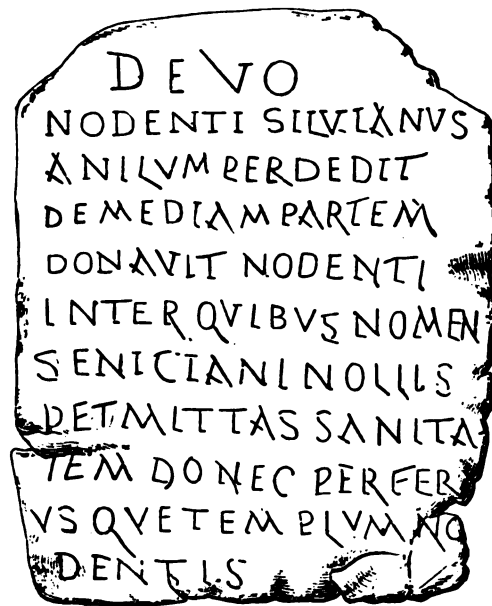 DEVO
NODENTI SILVIANVS
ANILVM PERDEDIT
DEMEDIAM PARTEM
DONAVIT NODENTI
INTER QVIBVS NOMEN
SENICIANI NOLLIS
PETMITTAS SANITA
TEM DONEC PERFER
VSQVE TEMPLVM NO
DENTIS